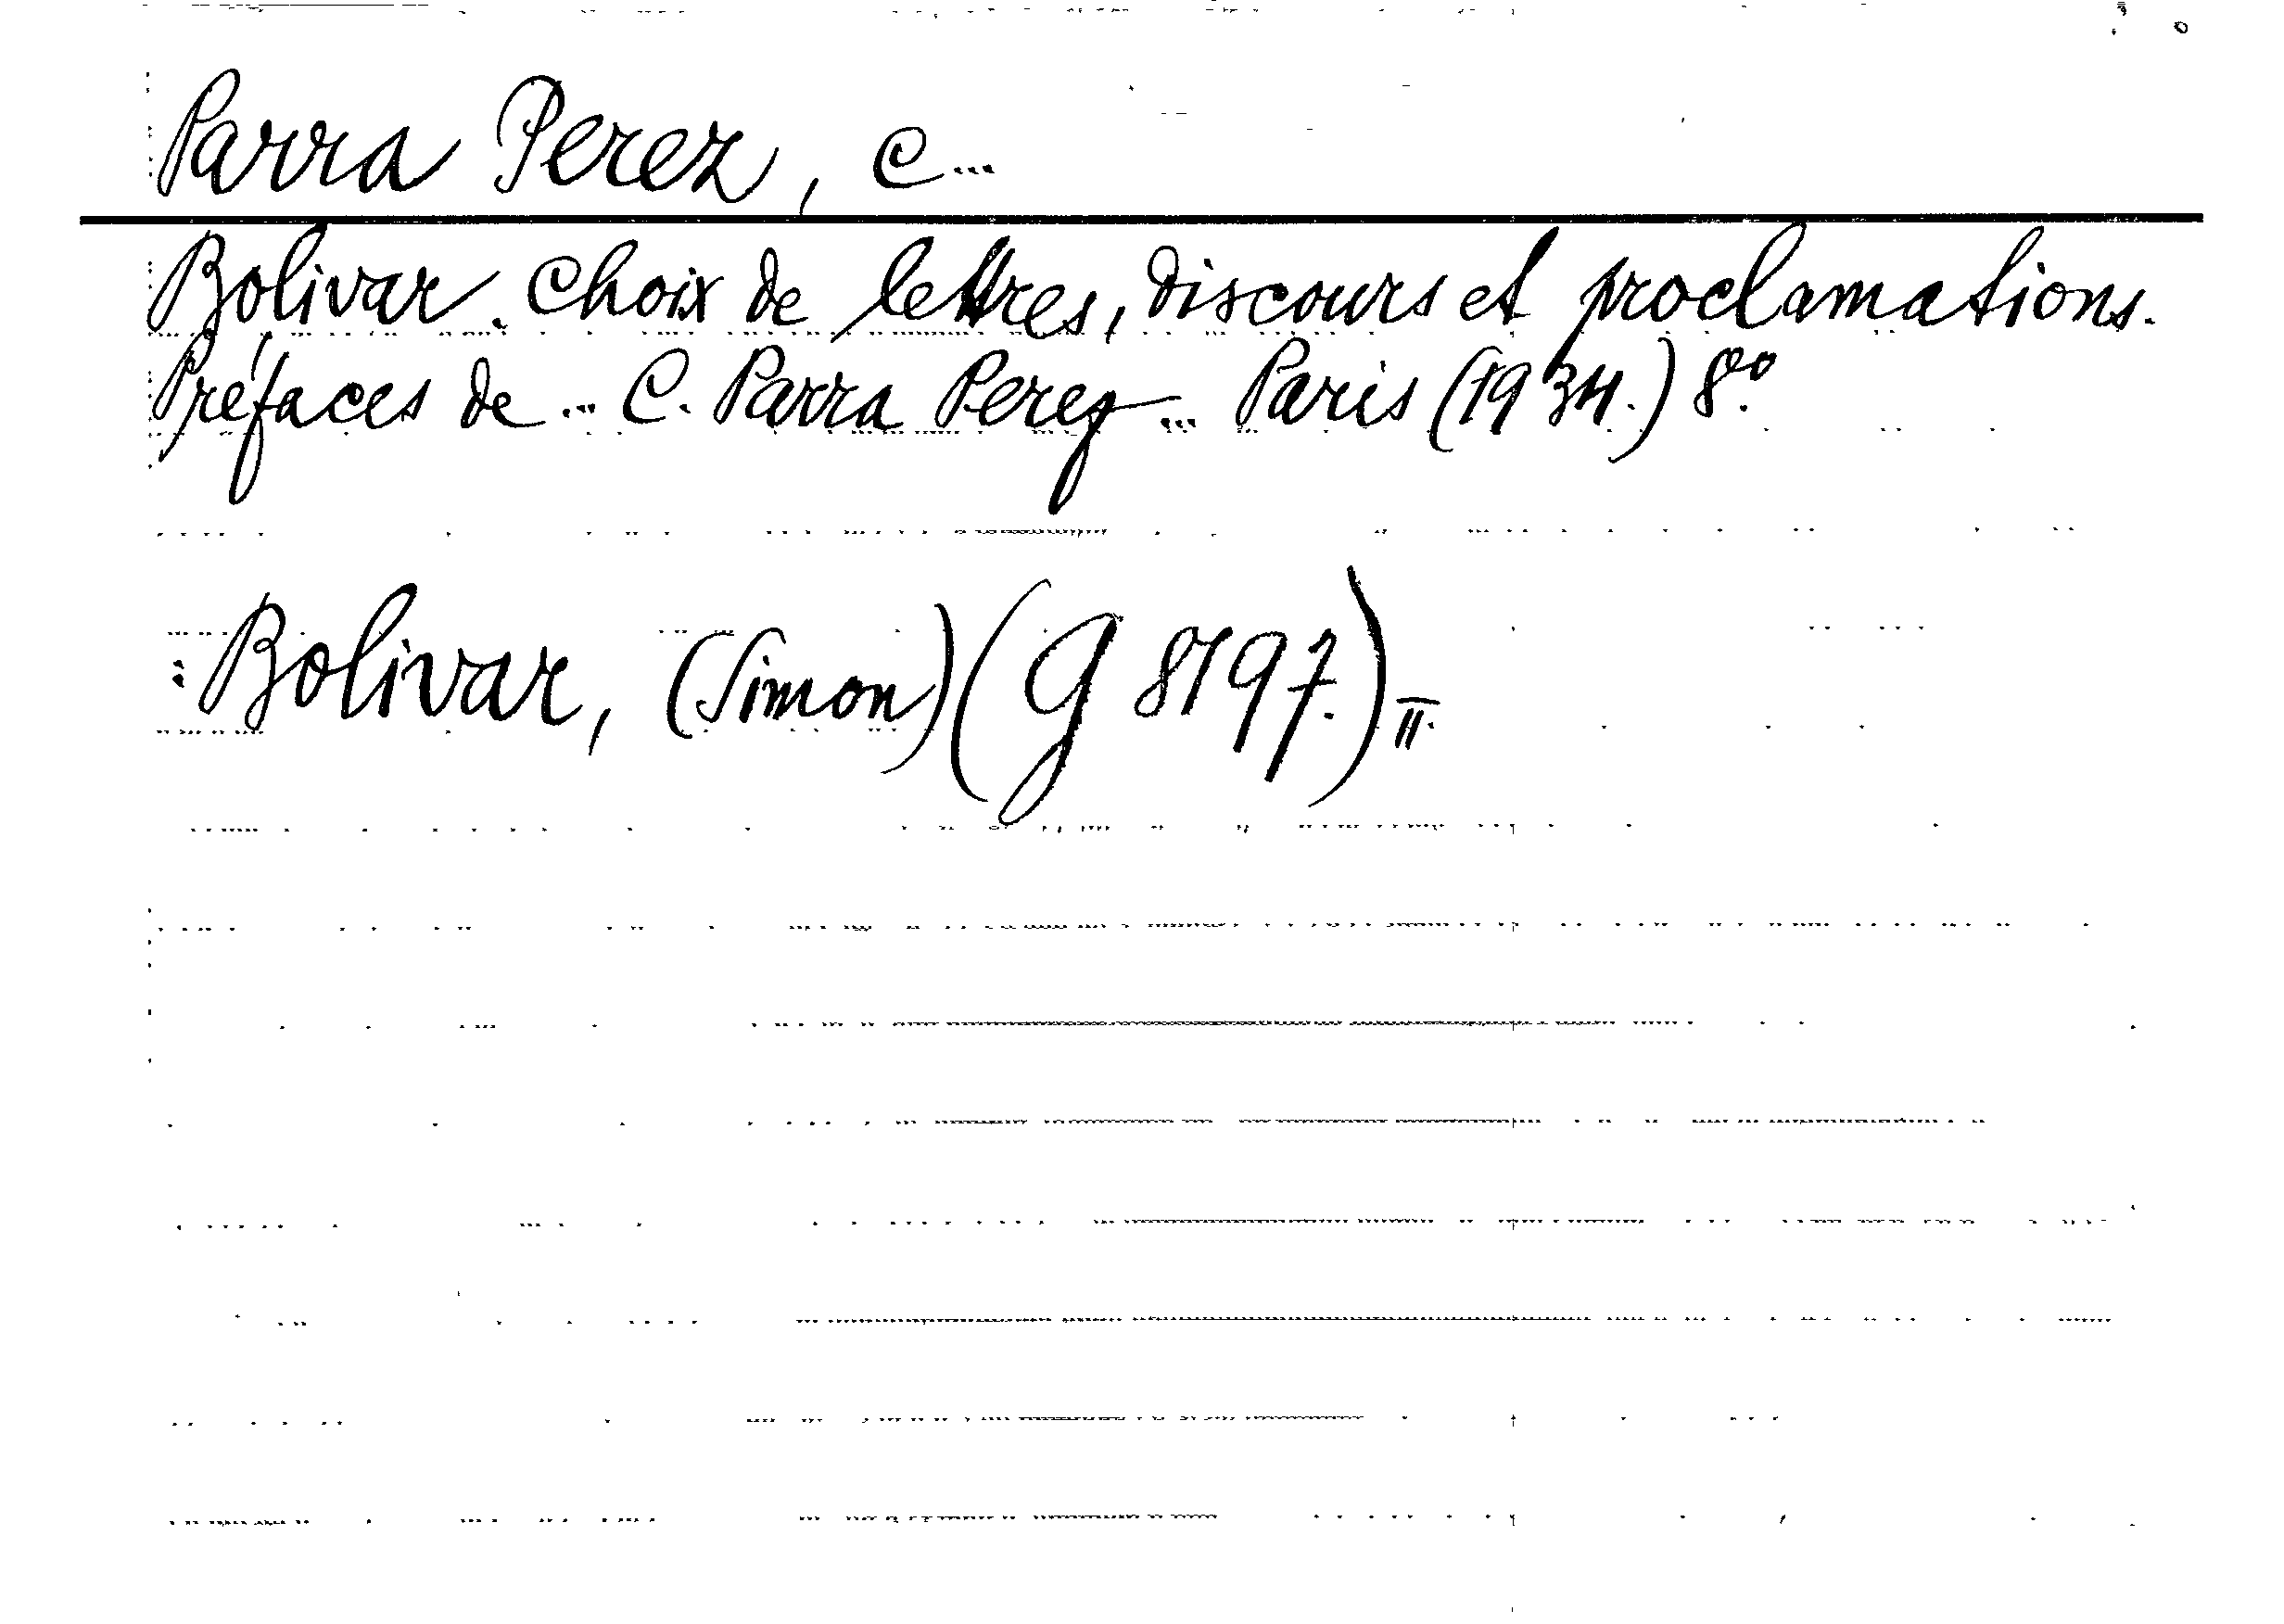 Parra Perez, C...
Bolivar. Choix de lettres, discours et proclamations.
Préfaces de ... C. Parra Perez ... Paris (1934.) 8.°
Bolivar, (Simon) (G 8797.) II.